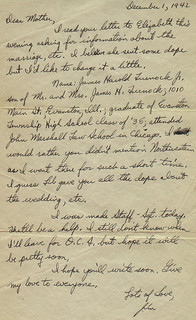 December 1, 1942
Dear Mother,
I read your letter to Elizabeth this
evening asking for information about the
marriage, etc. I believe she sent some dope
but I'd like to change it a little.
Name: James Harold Turnock Jr.
son of Mr. and Mrs. James H. Turnock, 1010
Main St. Evanston, Ill.; graduate of Evanston
Township High School class of '35, attended
John Marshall Law School in Chicago. I
would rather you didn't mention Northwestern
as I went there for such a short time.
I guess I've gave you all the dope about
the wedding, etc.
I was made Staff-Sgt today.
It'll be a help. I still don't know when
I'll leave for O.C.S. but hope it will
be pretty soon.
I hope you'll write soon. Give
my love to everyone.
Lots of Love,
Jim